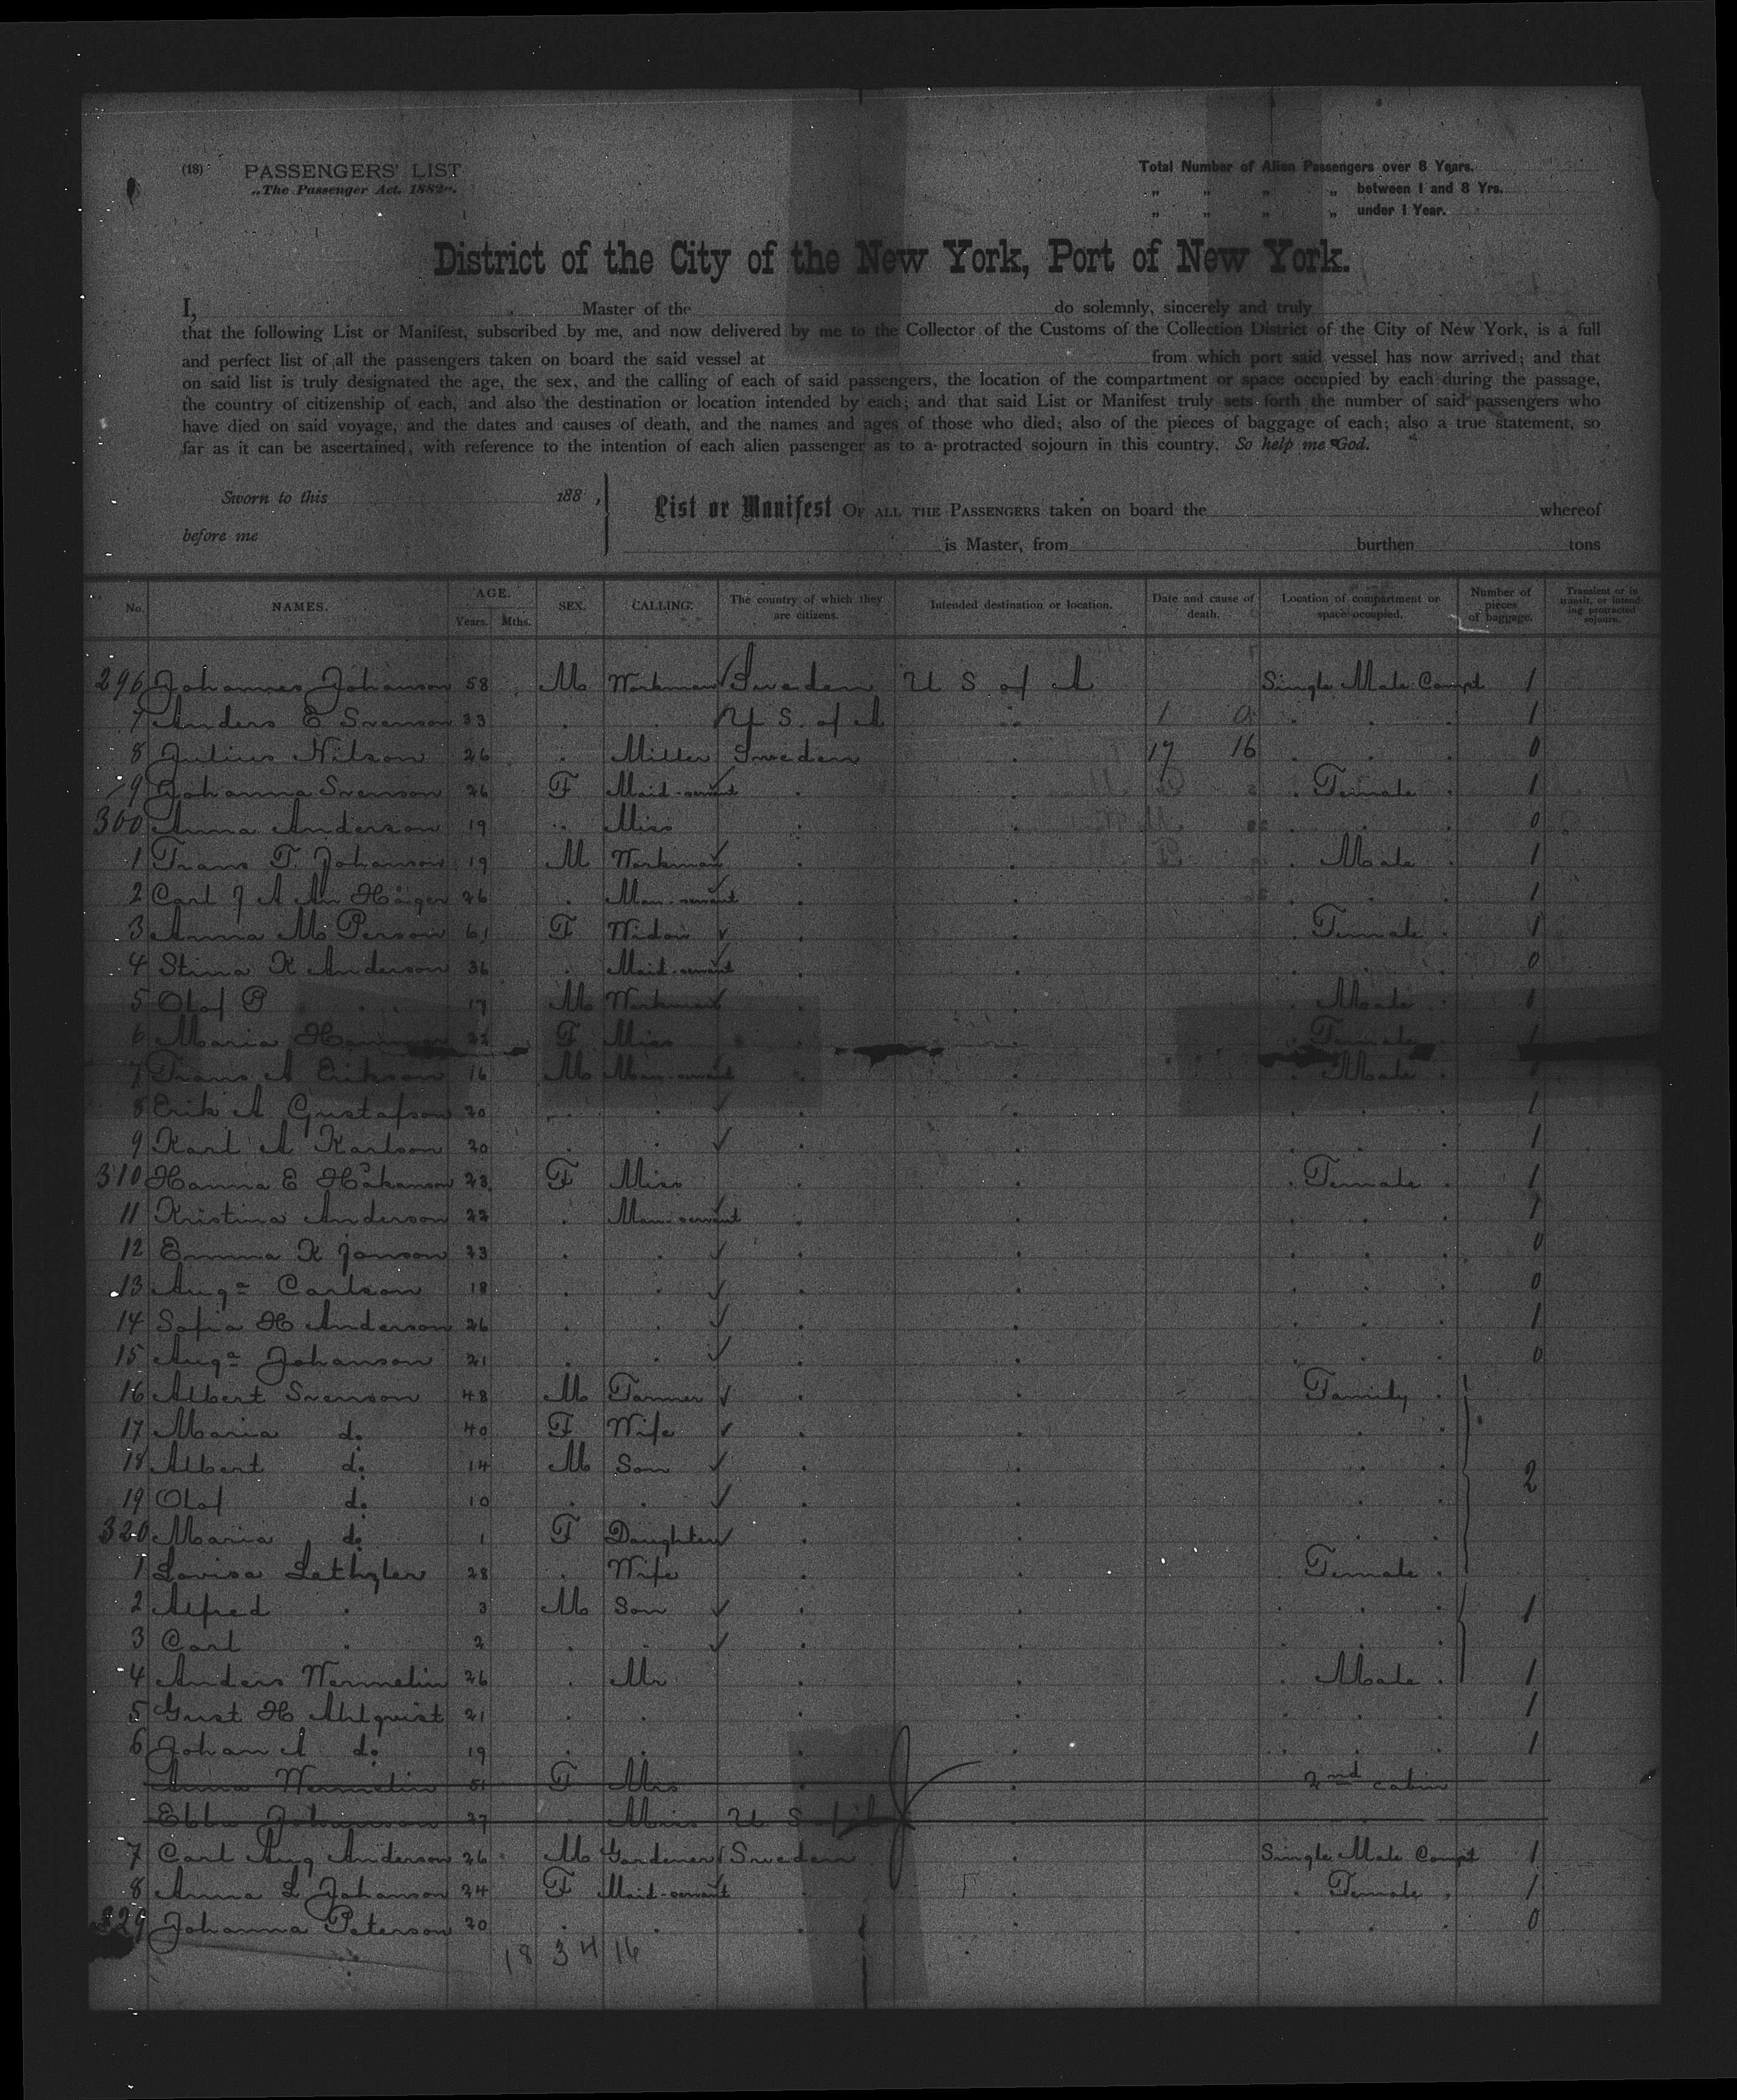 (18) PASSENGERS' LIST
„The Passenger Act, 1882".
Total Number of Alien Passengers over 8 Years.
„ „ „ „ between 1 and 8 Yrs.
„ „ „ „ under 1 Year.
District of the City of the New York, Port of New York.
I, Master of the do solemnly, sincerely and truly
that the following List or Manifest, subscribed by me, and now delivered by me to the Collector of the Customs of the Collection District of the City of New York, is a full
and perfect list of all the passengers taken on board the said vessel at from which port said vessel has now arrived; and that
on said list is truly designated the age, the sex, and the calling of each of said passengers, the location of the compartment or space occupied by each during the passage,
the country of citizenship of each, and also the destination or location intended by each; and that said List or Manifest truly sets forth the number of said passengers who
have died on said voyage, and the dates and causes of death, and the names and ages of those who died; also of the pieces of baggage of each; also a true statement, so
far as it can be ascertained, with reference to the intention of each alien passenger as to a protracted sojourn in this country. So help me God.
Sworn to this 188 ,
before me
List or Manifest OF ALL THE PASSENGERS taken on board the whereof
is Master, from burthen tons
No. NAMES. AGE. Years. Mths. SEX. CALLING. The country of which they are citizens. Intended destination or location. Date and cause of death. Location of compartment or space occupied. Number of pieces of baggage. Transient or in transit, or intending protracted sojourn.
296 Johannes Johanson 58 M Workman Sweden U S of A Single Male Compt 1
7 Anders E Svenson 33 . . U S. of A . 1 . . . 1
8 Julius Nilson 26 . Miller Sweden . 17 16 . . . 0
9 Johanna Svenson 26 F Maid-servant . . . Female . 1
300 Anna Anderson 19 . Miss . . . . . 0
1 Frans T. Johanson 19 M Workman . . . Male . 1
2 Carl J A 26 . Man-servant . . . . . 1
3 Anna M Person 61 F Widow . . . Female . 1
4 Stina K Anderson 36 . Maid-servant . . . . . 0
5 Olof P . . 17 M Workman . . . Male . 1
6 Maria 22 F Miss . . . Female . 1
7 Frans A Erikson 16 M Man-servant . . . Male .
8 Erik A Gustafson 20 . . . . . . . 1
9 Karl A Karlson 20 . . . . . . . 1
310 Hanna E Håkanson 23 F Miss . . . Female . 1
11 Kristina Anderson 22 . Man-servant . . . . . 1
12 Emma K Janson 23 . . . . . . . 0
13 Auga Carlson 18 . . . . . . . 0
14 Sofia H Anderson 26 . . . . . . . 1
15 Auga Johanson 21 . . . . . . . 0
16 Albert Svenson 48 M Farmer . . Family .
17 Maria do 40 F Wife . . . .
18 Albert do 14 M Son . . . . 2
19 Olof do 10 . . . . . .
320 Maria do 1 F Daughter . . . .
1 Lovisa Lethgler 28 . Wife . . Female .
2 Alfred . 3 M Son . . . . . 1
3 Carl . 2 . . . . . . .
4 Anders Wermelin 26 . Mr . . . Male . 1
5 Gust H Ahlqvist 21 . . . . . . . 1
6 Johan A do 19 . . . . . . . 1
Anna Wermelin 51 F Mrs . . 2nd cabin
Ebba Johanson 27 . Miss U S of A . .
7 Carl Aug Anderson 26 M Gardener Sweden . Single Male Compt 1
8 Anna L Johanson 24 F Maid-servant . . . Female . 1
329 Johanna Peterson 20 . . . . . . . 0
18 3 4 16